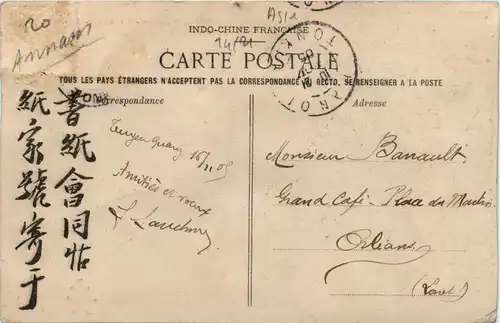 20
Annam
Asie
INDO-CHINE FRANÇAISE
CARTE POSTALE
TOUS LES PAYS ÉTRANGERS N'ACCEPTENT PAS LA CORRESPONDANCE AU RECTO, SE RENSEIGNER A LA POSTE
Correspondance
Adresse
TONKIN
書紙會同怗
紙家號寄于
Tuyen Quang 15/11 05
Amitiés et voeux
Monsieur Barrault
Grand Café - Place du Martroi
Orléans
(Loiret)